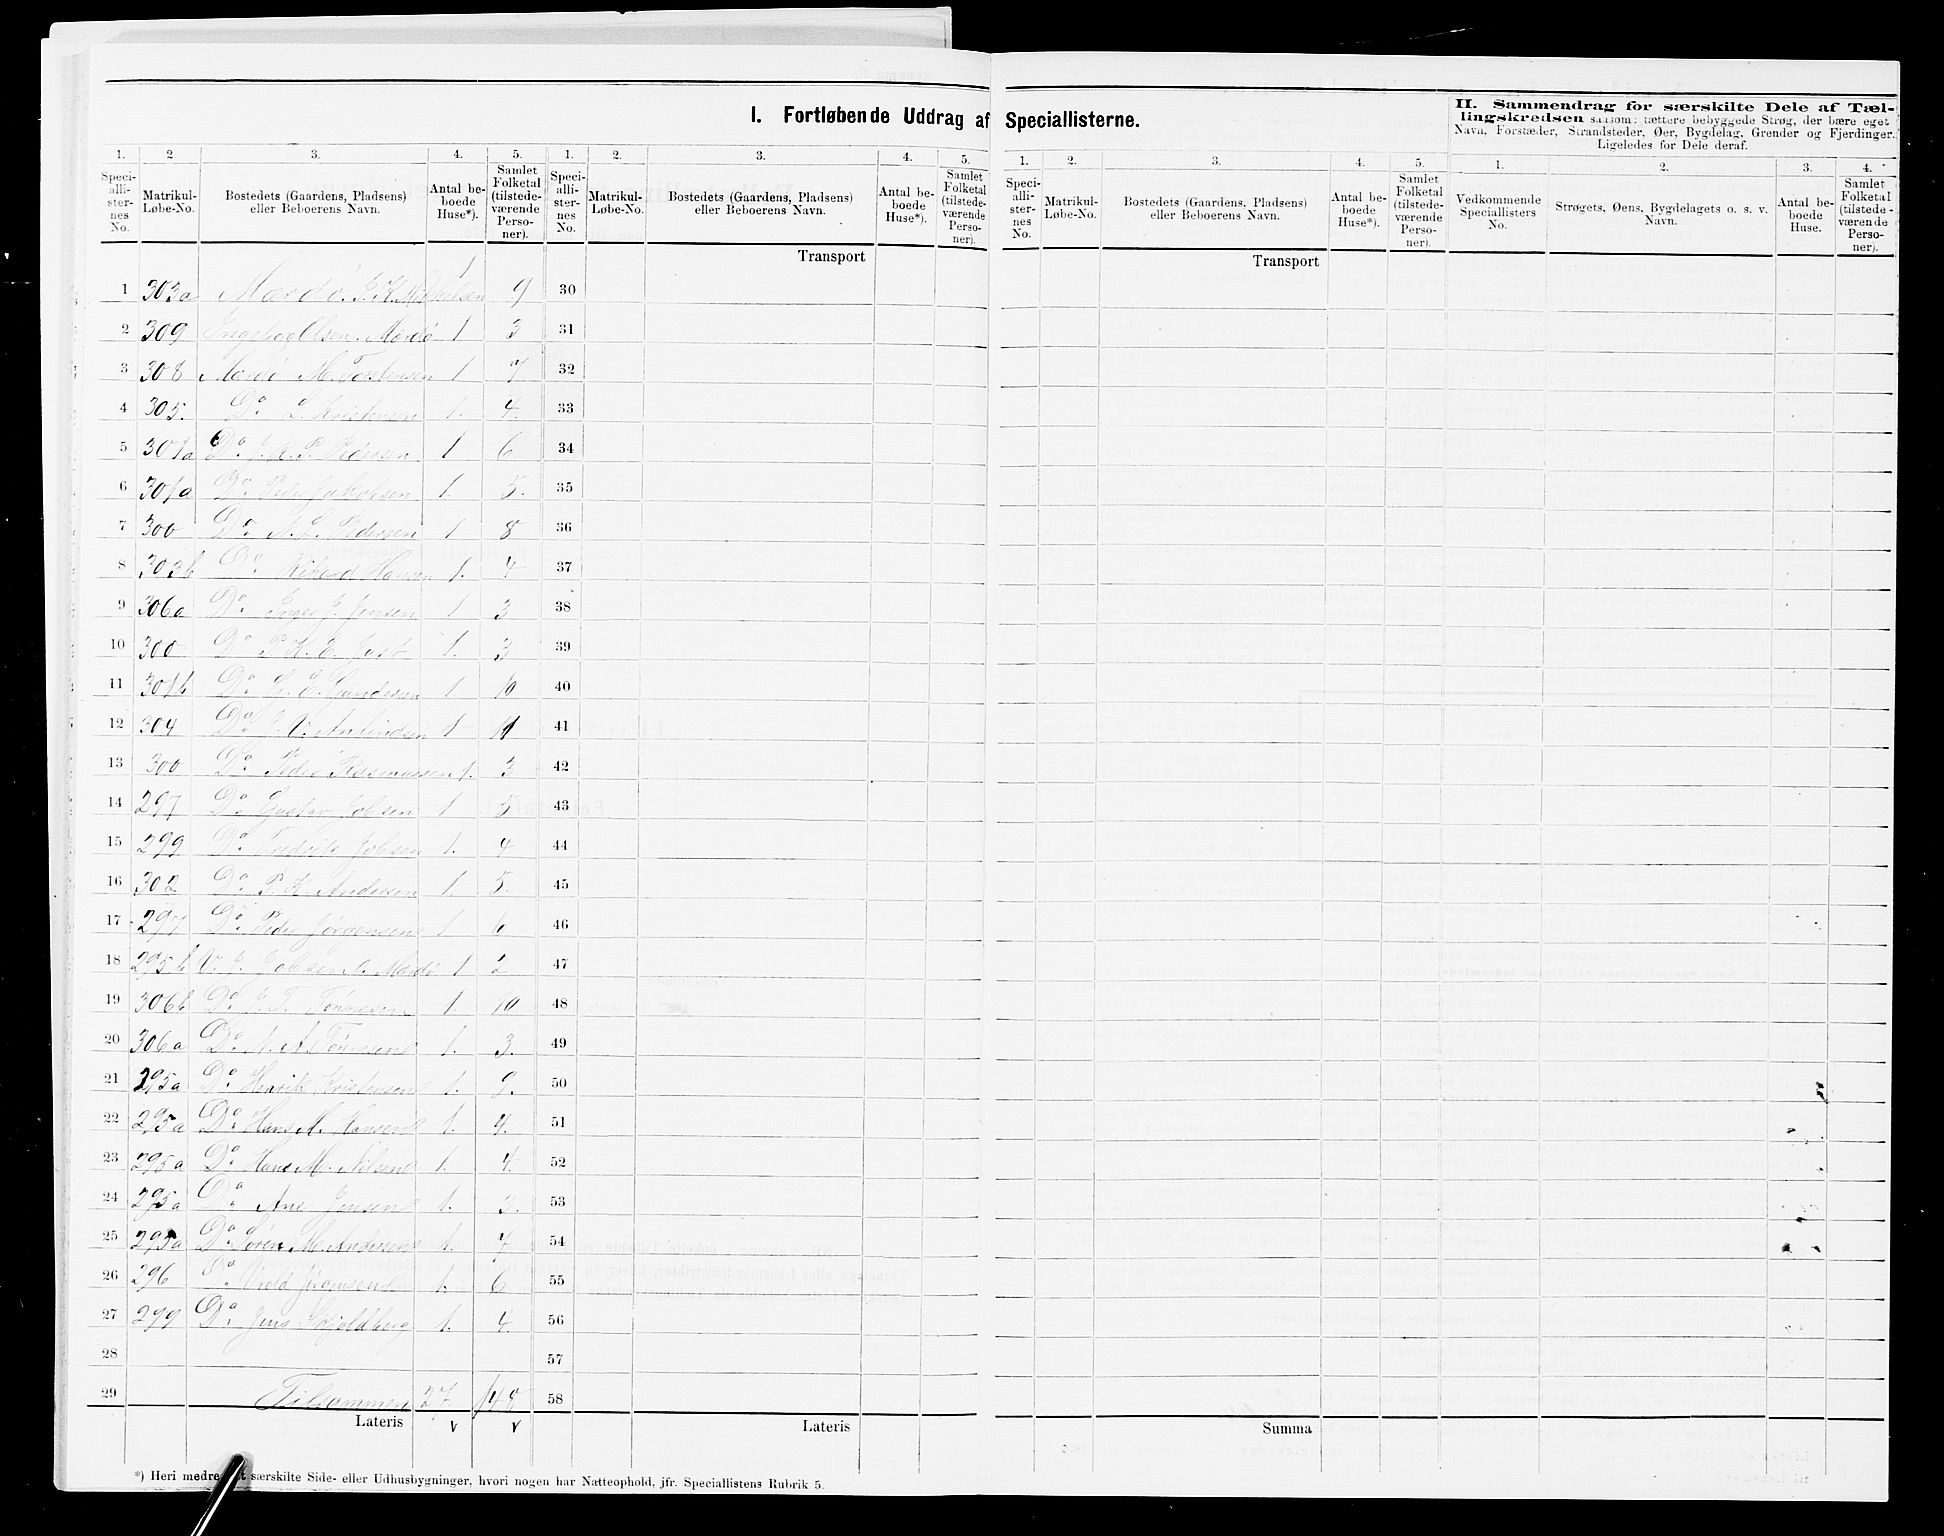 I. Fortløbende Uddrag af Speciallisterne.
II. Sammendrag for særskilte Dele af Tæl-
lingskredsen saasom: tættere bebyggede Strøg, der bære eget
Navn, Forstæder, Strandsteder, Øer, Bygdelag, Grender og Fjerdinger.
Ligeledes for Dele deraf.
1. 2 3. 4. 5. 1. 2. 3. 4. 5. 1. 2. 3. 4. 5. 1. 2. 3. 4.
Speci-
alli-
ster-
nes
No.
Matrikul-
Løbe-No.
Bostedets (Gaardens, Pladsens)
eller Beboerens Navn.
Antal be-
boede
Huse*).
Samlet
Folketal
(tilstede-
værende
Perso-
ner).
Speci-
alli-
ster-
nes
No.
Matrikul-
Løbe-No.
Bostedets (Gaardens, Pladsens)
eller Beboerens Navn.
Antal be-
boede
Huse*).
Samlet
Folketal
(tilstede-
værende
Perso-
ner).
Speci-
alli-
ster-
nes
No.
Matrikul-
Løbe-No.
Bostedets (Gaardens, Pladsens)
eller Beboerens Navn.
Antal be-
boede
Huse*).
Samlet
Folketal
(tilstede-
værende
Perso-
ner).
Vedkommende
Speciallisters
No.
Strøgets, Øens, Bygdelagets o. s. v.
Navn.
Antal be-
boede
Huse.
Samlet
Folketal
(tilstede-
værende
Perso-
ner).
Transport Transport
1 303a Mærdø. J. K. 1 9 30
2 309 Olsen. Mærdø 1 3 31
3 308 Mærdø M. Torstensen 1 7 32
4 305. Do L. Kristensen 1. 4. 33
5 301a Do. J. K. P. Pedersen 1 6 34
6 301a Do. Peder Jakobsen 1. 5. 35
7 300 Do A. L. Pedersen 1 8 36
8 303b Do Hansen 1. 4 37
9 306a Do. J. Jensen 1 3 38
10 300 Do P. K. E. 1. 3 39
11 301b Do. G. E. Gundersen 1 10 40
12 304 Do. J. V. 1 11 41
13 300 Do. Peder Rasmussen 1. 3 42
14 297 Do. Gustav Jobsen 1 5 43
15 299 Do. Fredrik Jobsen 1. 4 44
16 302 Do. P. K. Andersen 1. 5. 45
17 297 Do. Peder Jørgensen 1 6 46
18 295b V. J. Jobsen. Mærdø 1 2 47
19 306b Do. J. T. Tønnesen 1. 10 48
20 306a Do. A. A. Tønnesen 1. 3. 49
21 295a Do. Henrik Kristensen 1. 9. 50
22 295a Do. Hans A. Hansen 1. 4. 51
23 295a Do. Hans M. Nilsen 1. 4. 52
24 295a Do. Ane Jensen 1. 2. 53
25 295a Do. Søren M. Andersen 1. 7 54
26 296 Do. Jørgensen 1. 6 55
27 299 Do. Jens Skjoldberg 1. 4. 56
28 57
29 Tilsammen 27 148 58
Lateris v v Lateris Summa
*) Heri særskilte Side- eller Udhusbygninger, hvori nogen har Natteophold, jfr. Speciallistens Rubrik 5.